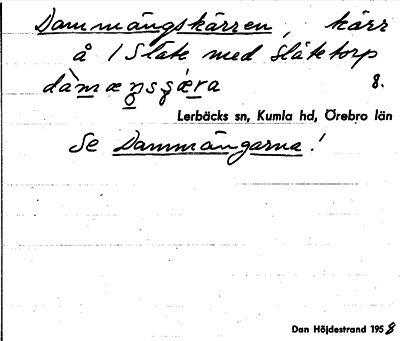 Dammängskärren, kärr
å 1 Släte med Slätetorp
8.
Lerbäcks sn, Kumla hd, Örebro län
Se Dammängarna!
Dan Höjdestrand 1958